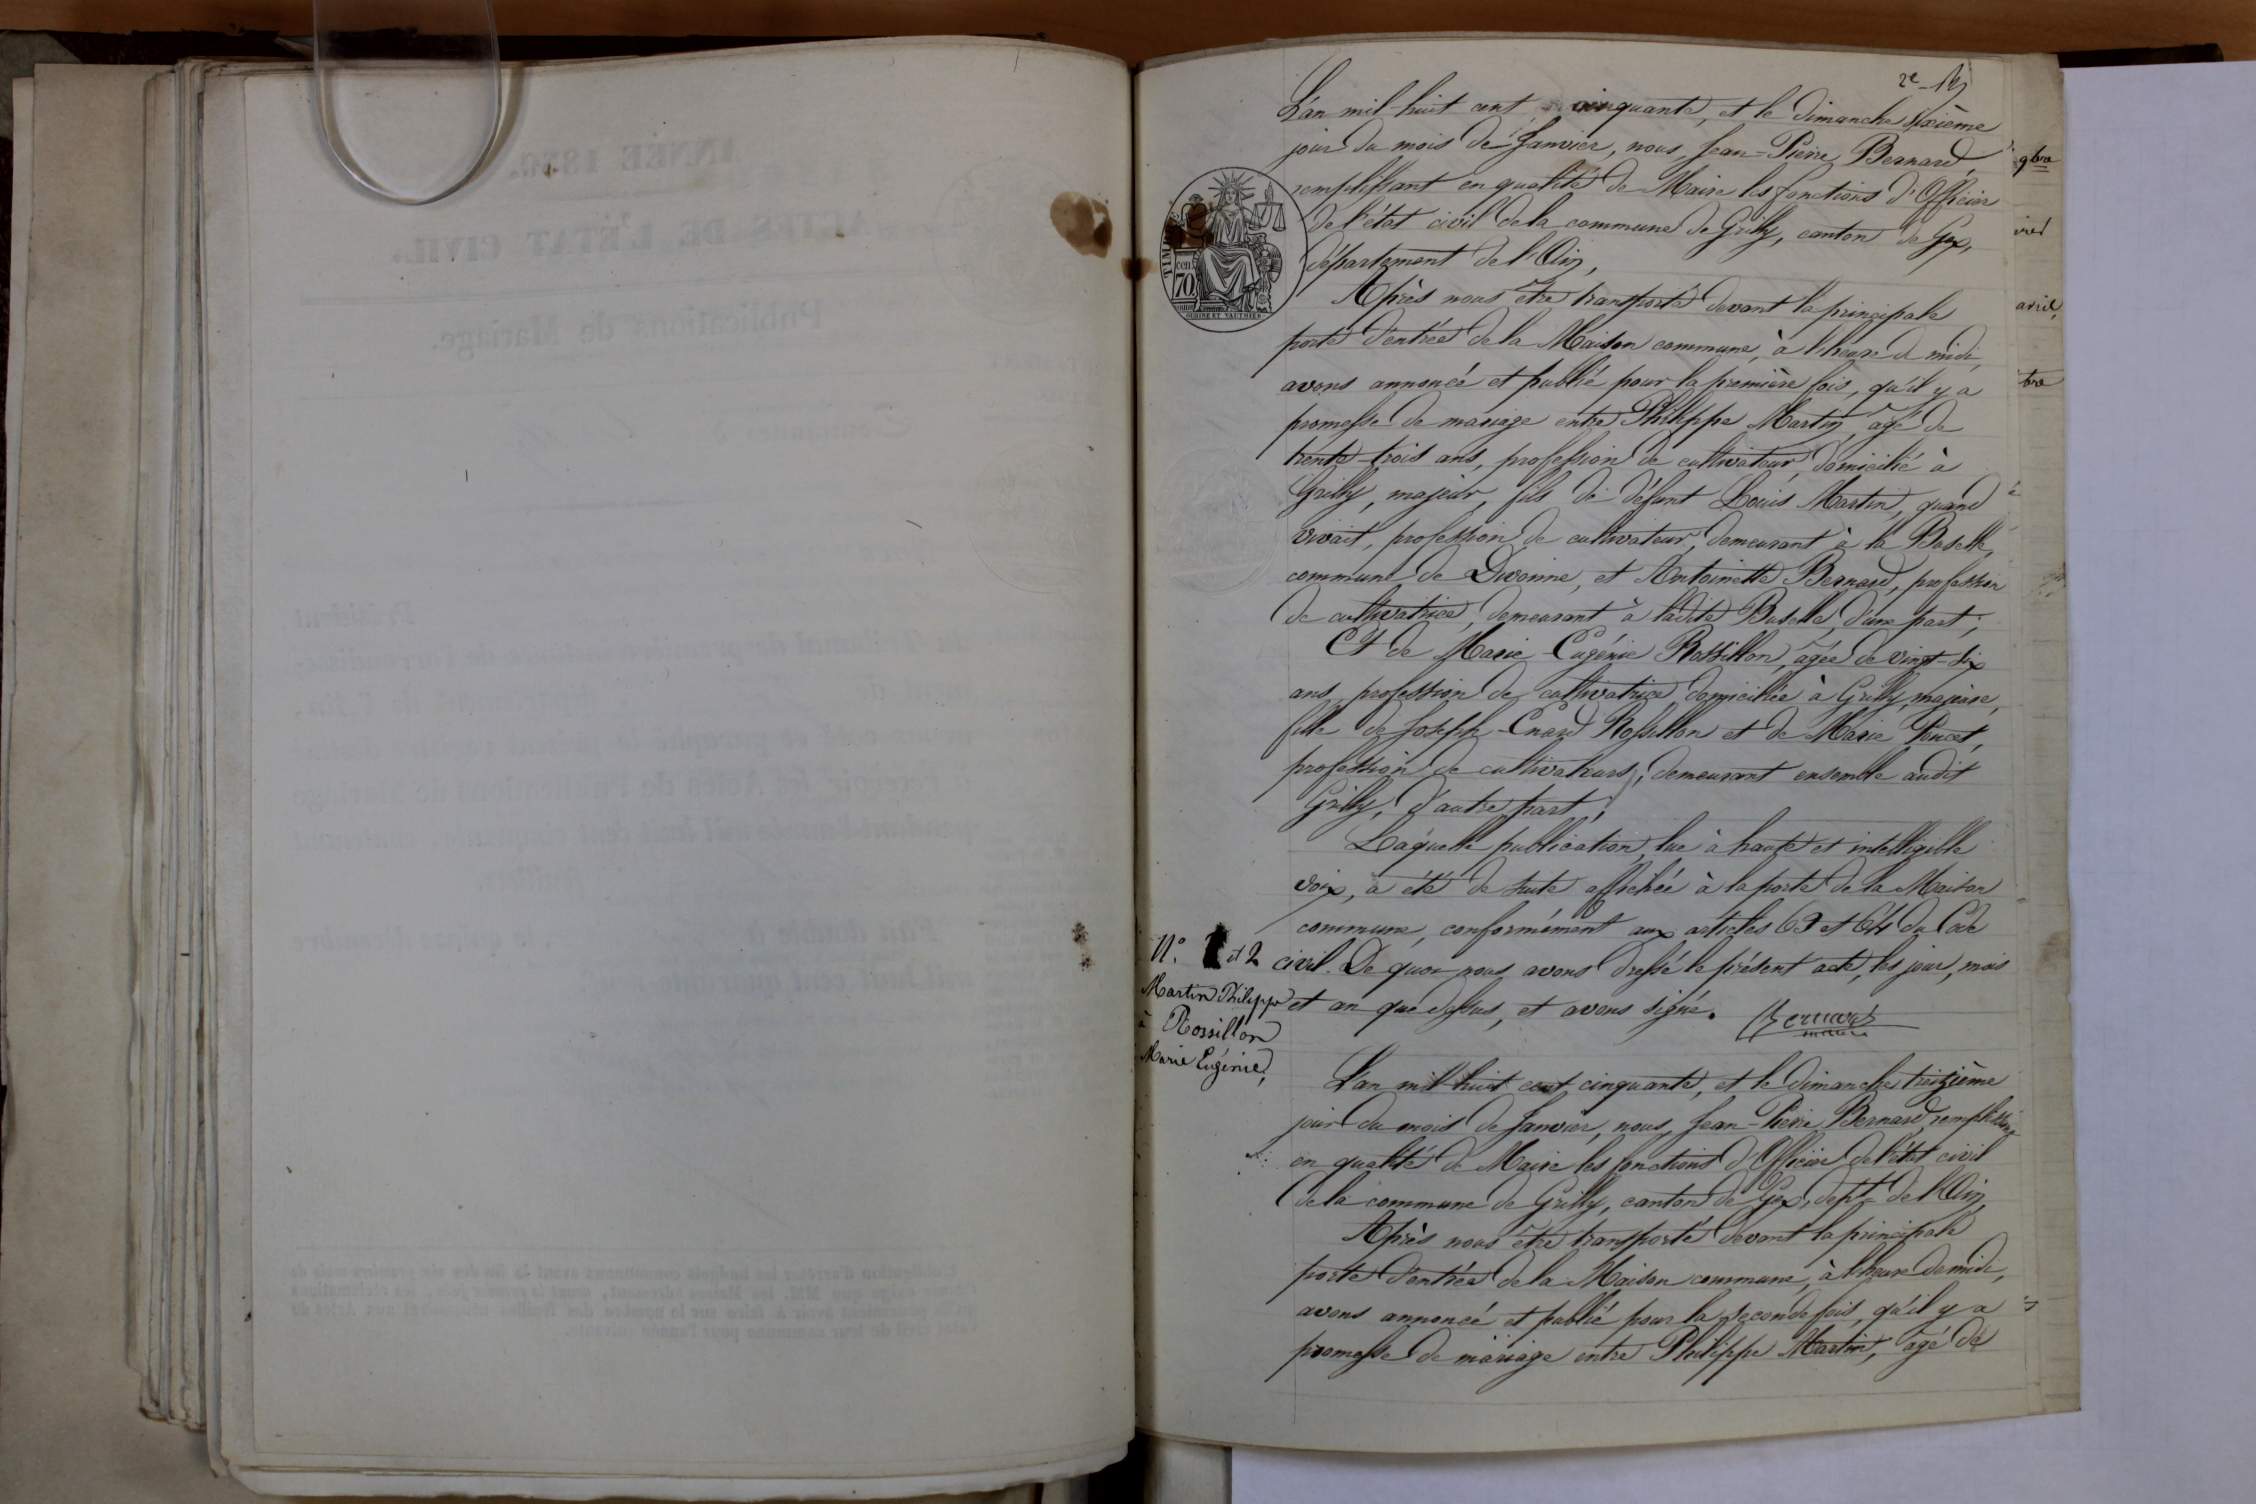 2e
L'an mil-huit cent cinquante, et le dimanche sixième
jour du mois de Janvier, nous, Jean-Pierre Bernard
remplissant en qualité de Maire les fonctions d'Officier
de l'état civil de la commune de Grilly, canton de Gex,
département de l'Ain,
Après nous être transporté devant la principale
porte d'entrée de la Maison commune, à l'heure de midi,
avons annoncé et publié pour la première fois, qu'il y a
promesse de mariage entre Philippe Martin, âgé de
trente-trois ans, profession de cultivateur, domicilié à
Grilly, majeur, fils de défunt Louis Martin, quand
vivait, profession de cultivateur, demeurant à la
commune de Divonne, et Antoinette Bernard, profession
de cultivatrice, demeurant à ladite d'une part;
Et de Marie-Eugénie Rossillon, âgée de vingt-six
ans, profession de cultivatrice domiciliée à Grilly, majeure,
fille de Joseph-Enard Rossillon et de Marie Poncet,
profession de cultivateurs, demeurant ensemble audit
Grilly, d'autre part;
Laquelle publication, lue à haute et intelligible
voix, a été de suite affichée à la porte de la Maison
commune, conformément aux articles 63 et 64 du Code
civil. De quoi nous avons dressé le présent acte, les jour, mois
et an que dessus, et avons signé. Bernard
maire
N°. 1 et 2
Martin Philippe
à Rossillon
Marie Eugénie,
L'an mil-huit cent cinquante, et le dimanche treizième
jour du mois de Janvier, nous, Jean-Pierre Bernard, remplissant
en qualité de Maire les fonctions d'Officier de l'état civil
de la commune de Grilly, canton de Gex, dépt de l'Ain,
Après nous être transporté devant la principale
porte d'entrée de la Maison commune, à l'heure de midi,
avons annoncé et publié pour la seconde fois, qu'il y a
promesse de mariage entre Philippe Martin, âgé de
TIMBRE
cen
70
OUDINE ET VAUTHIER
9bre
avril,
bre